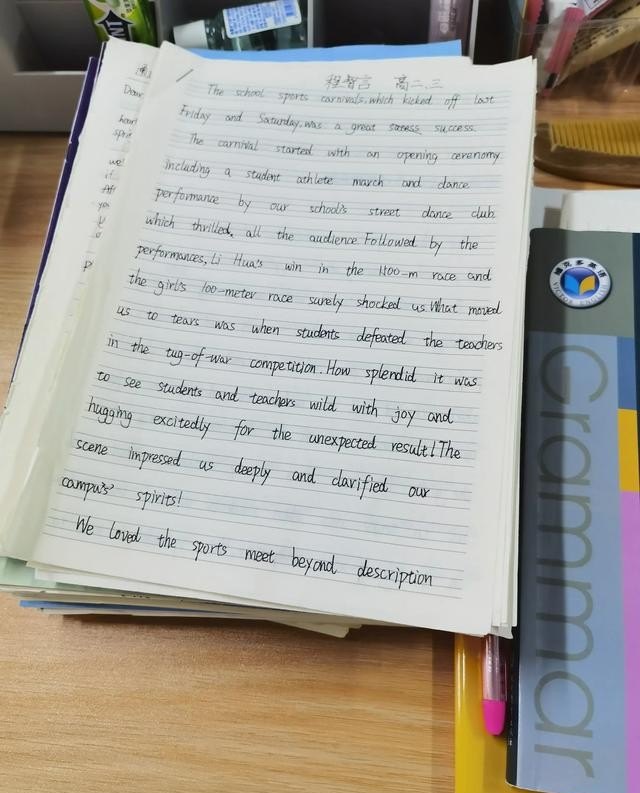 程智言 高二.三
The school sports carnivals, which kicked off last
Friday and Saturday, was a great success.
The carnival started with an opening ceremony
including a student athlete march and dance
performance by our school's street dance club
which thrilled all the audience. Followed by the
performances, Li Hua's win in the 1100-m race and
the girl's 100-meter race surely shocked us. What moved
us to tears was when students defeated the teachers
in the tug-of-war competition. How splendid it was
to see students and teachers wild with joy and
hugging excitedly for the unexpected result! The
scene impressed us deeply and clarified our
campus' spirits!
We loved the sports meet beyond description
Dear
维克多英语
VICTOR ENGLISH
Grammar